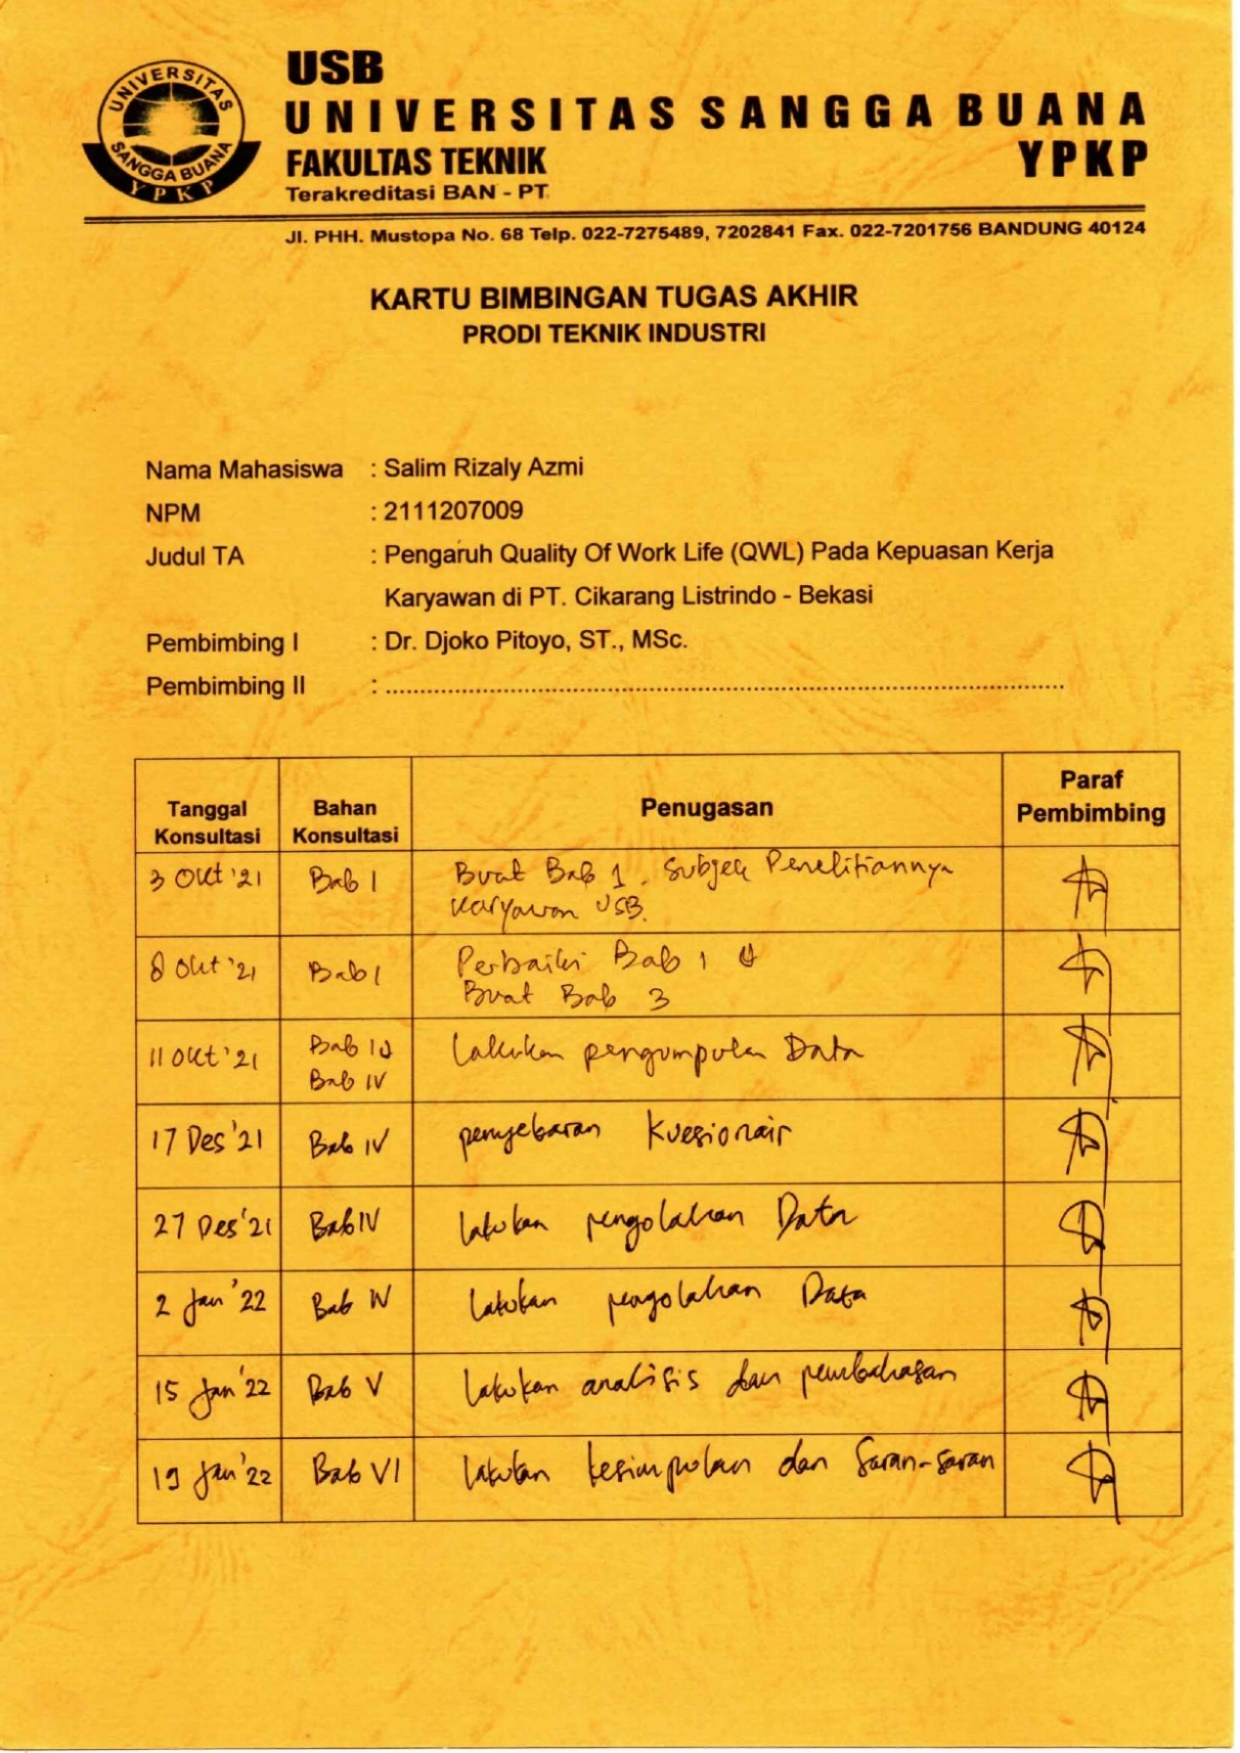 UNIVERSITAS
SANGGA BUANA
YPKP
USB
UNIVERSITAS SANGGA BUANA
YPKP
FAKULTAS TEKNIK
Terakreditasi BAN - PT
Jl. PHH. Mustopa No. 68 Telp. 022-7275489, 7202841 Fax. 022-7201756 BANDUNG 40124
KARTU BIMBINGAN TUGAS AKHIR
PRODI TEKNIK INDUSTRI
Nama Mahasiswa : Salim Rizaly Azmi
NPM : 2111207009
Judul TA : Pengaruh Quality Of Work Life (QWL) Pada Kepuasan Kerja
Karyawan di PT. Cikarang Listrindo - Bekasi
Pembimbing I : Dr. Djoko Pitoyo, ST., MSc.
Pembimbing II : ....................................................................................................
Tanggal Konsultasi Bahan Konsultasi Penugasan Paraf Pembimbing
3 Okt '21 Bab 1 Buat Bab 1. Subjek Penelitiannya
Karyawan USB.
8 Okt '21 Bab 1 Perbaiki Bab 1
Buat Bab 3
11 Okt '21 Bab Lakukan pengumpulan Data
Bab IV
17 Des '21 Bab IV penyebaran Kuesionair
27 Des '21 Bab IV lakukan pengolahan Data
2 Jan '22 Bab IV lakukan pengolahan Data
15 Jan '22 Bab V lakukan analisis dan pembahasan
19 Jan '22 Bab VI lakukan kesimpulan dan Saran-saran